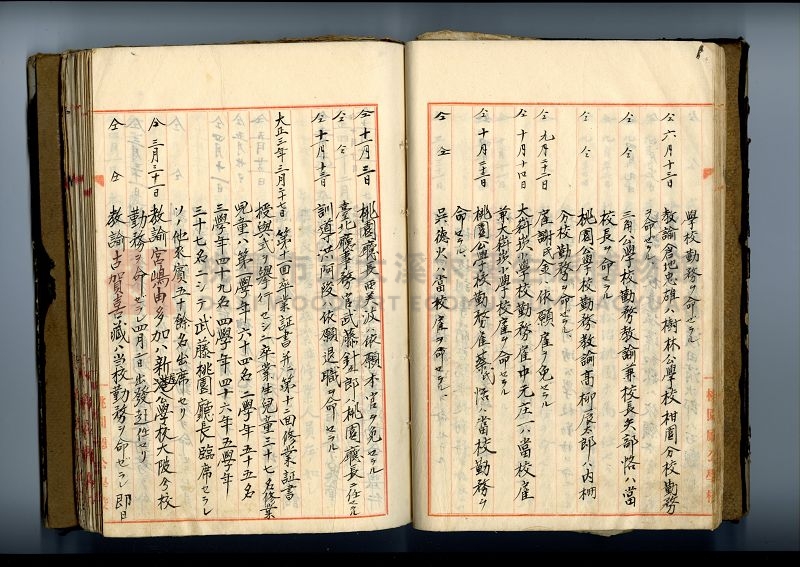 學校勤務ヲ命セラル
仝 六月十三日 教諭倉地忠雄ハ樹林公學校柑園分校勤務
ヲ命セラル
仝 仝 三角公學校勤務教諭兼校長矢部恪ハ當
校長ヲ命セラル
仝 仝 桃園公學校勤務教諭高柳 太郎ハ内柵
分校勤務ヲ命セラル
仝 九月二十一日 雇謝氏金ハ依願雇ヲ免セラル
仝 十月十四日 大嵙崁小學校雇中元庄一ハ當校雇
兼大嵙崁小學校雇ヲ命セラル
仝 十月 桃園公學校勤務雇蔡氏恬ハ當校勤務ヲ
命セラル
仝 仝 吳德火ハ當校雇ヲ命セラル
仝 十一月三日 桃園廳長西美波ハ依願本官ヲ免セラル
仝 仝 臺北廳事務官武藤針五郎ハ桃園廳長ニ任セラル
仝 十一月十三日 訓導洪阿 ハ依願退職ヲ命セラル
大正三年三月二十七日 第十一回卒業証書並第十二回修業証書
授與式ヲ擧行セシニ卒業生兒童三十七名修業
兒童ハ第一學年六十四名二學年五十五名
三學年四十九名四學年四十六年五學年
三十七名ニシテ武藤桃園廳長臨席セラレ
ソノ他來賓五十餘名出席セリ
仝 三月三十一日 教諭宮嶋由多加ハ新港公學校大陂分校
勤務ヲ命セラレ四月二日出發赴任セリ
仝 仝 教諭古賀喜藏ハ当校勤務ヲ命ゼラレ即日